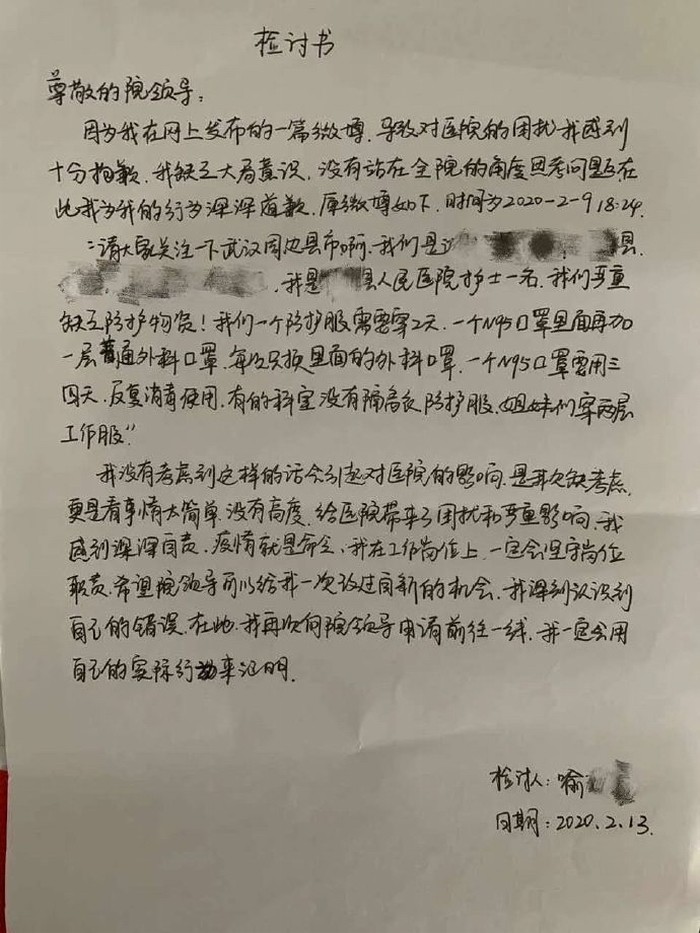 检讨书
尊敬的院领导：
因为我在网上发布的一篇微博，导致对医院的困扰我感到
十分抱歉，我缺乏大局意识，没有站在全院的角度思考问题在
此我为我的行为深深道歉，原微博如下，时间为2020-2-9 18:24.
"请大家关注一下武汉周边县市啊，我们是 县，
，我是 县人民医院护士一名，我们严重
缺乏防护物资！我们一个防护服需要穿2天，一个N95口罩里面再加
一层普通外科口罩，每次只换里面的外科口罩，一个N95口罩要用三
四天，反复消毒使用，有的科室没有隔离衣防护服，姐妹们穿两层
工作服"
我没有考虑到这样的话会引起对医院的影响，是我欠缺考虑，
更是看事情太简单，没有高度，给医院带来了困扰和严重影响，我
感到深深自责，疫情就是命令，我在工作岗位上，一定会坚守岗位
职责，希望院领导可以给我一次改过自新的机会，我深刻认识到
自己的错误，在此，我再次向院领导申请前往一线，我一定会用
自己的实际行动来证明.
检讨人：喻
日期：2020.2.13.